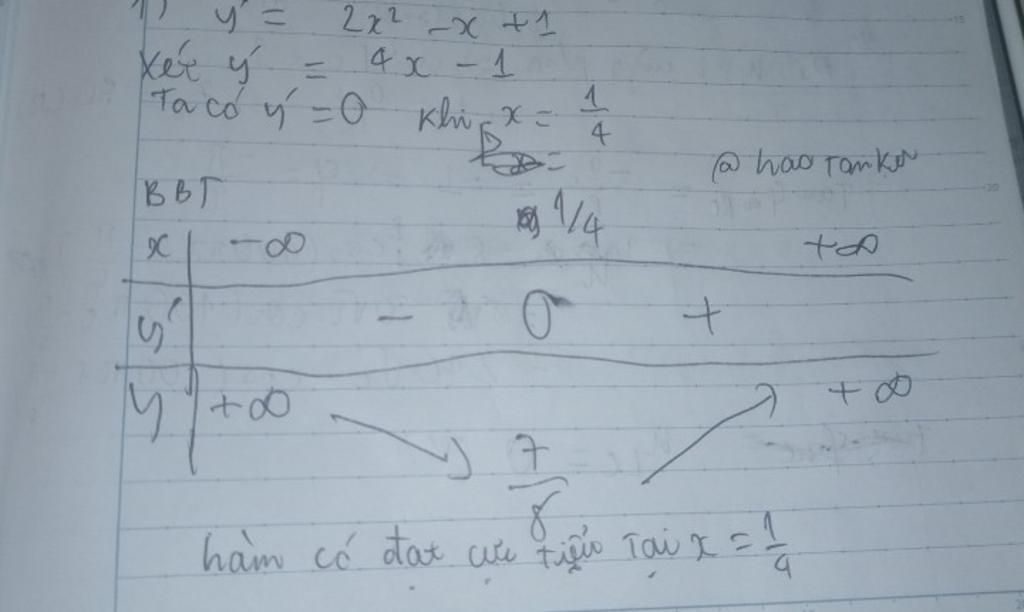 1) y = 2x² - x + 1
Xét y' = 4x - 1
Ta có y' = 0 khi x = 1/4
@haotamkw
BBT
x -∞ 1/4 +∞
y' - 0 +
y +∞ 7/8 +∞
hàm có đạt cực tiểu tại x = 1/4